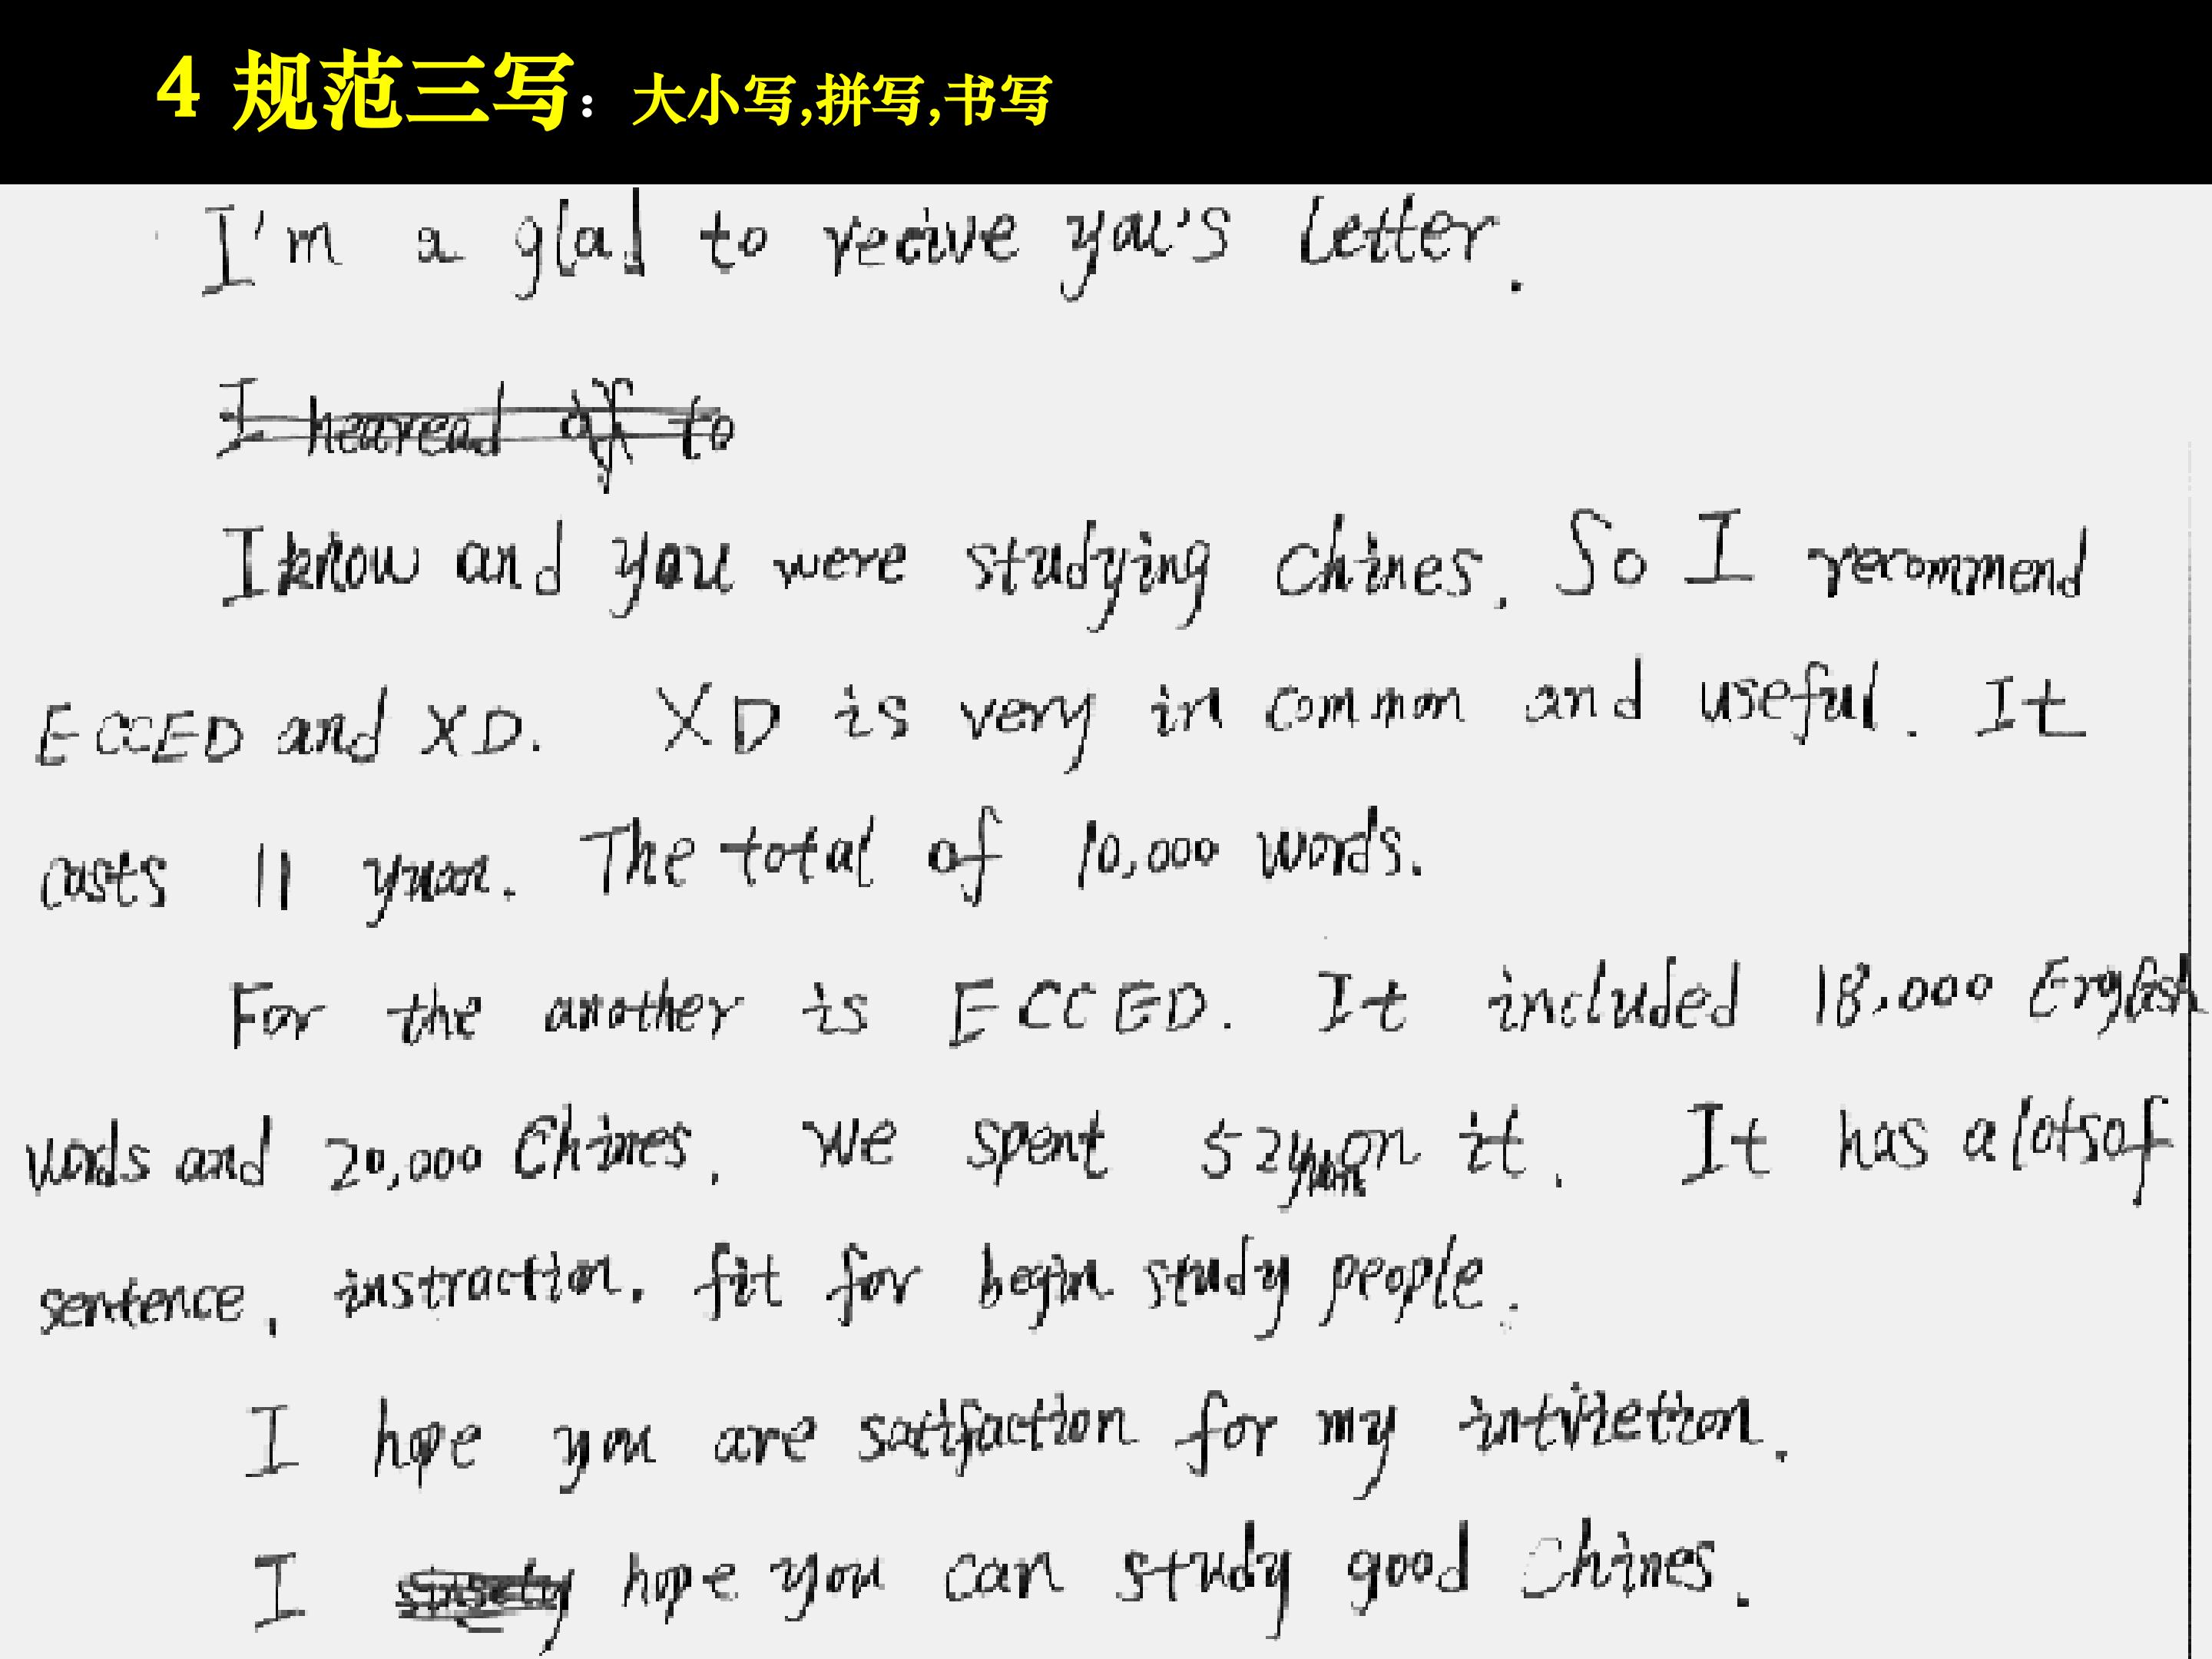 4 规范三写：大小写,拼写,书写
I'm a glad to recive you's letter.
I hearead of to
I know and you were studying Chines. So I recommend
ECCED and XD. XD is very in common and useful. It
casts 11 yuan. The total of 10,000 words.
For the another is ECCED. It included 18,000 English
words and 20,000 Chines. We spent 52yuan on it. It has a lots of
sentence, instraction. fit for begin study people.
I hope you are satifaction for my
I hope you can study good Chines.